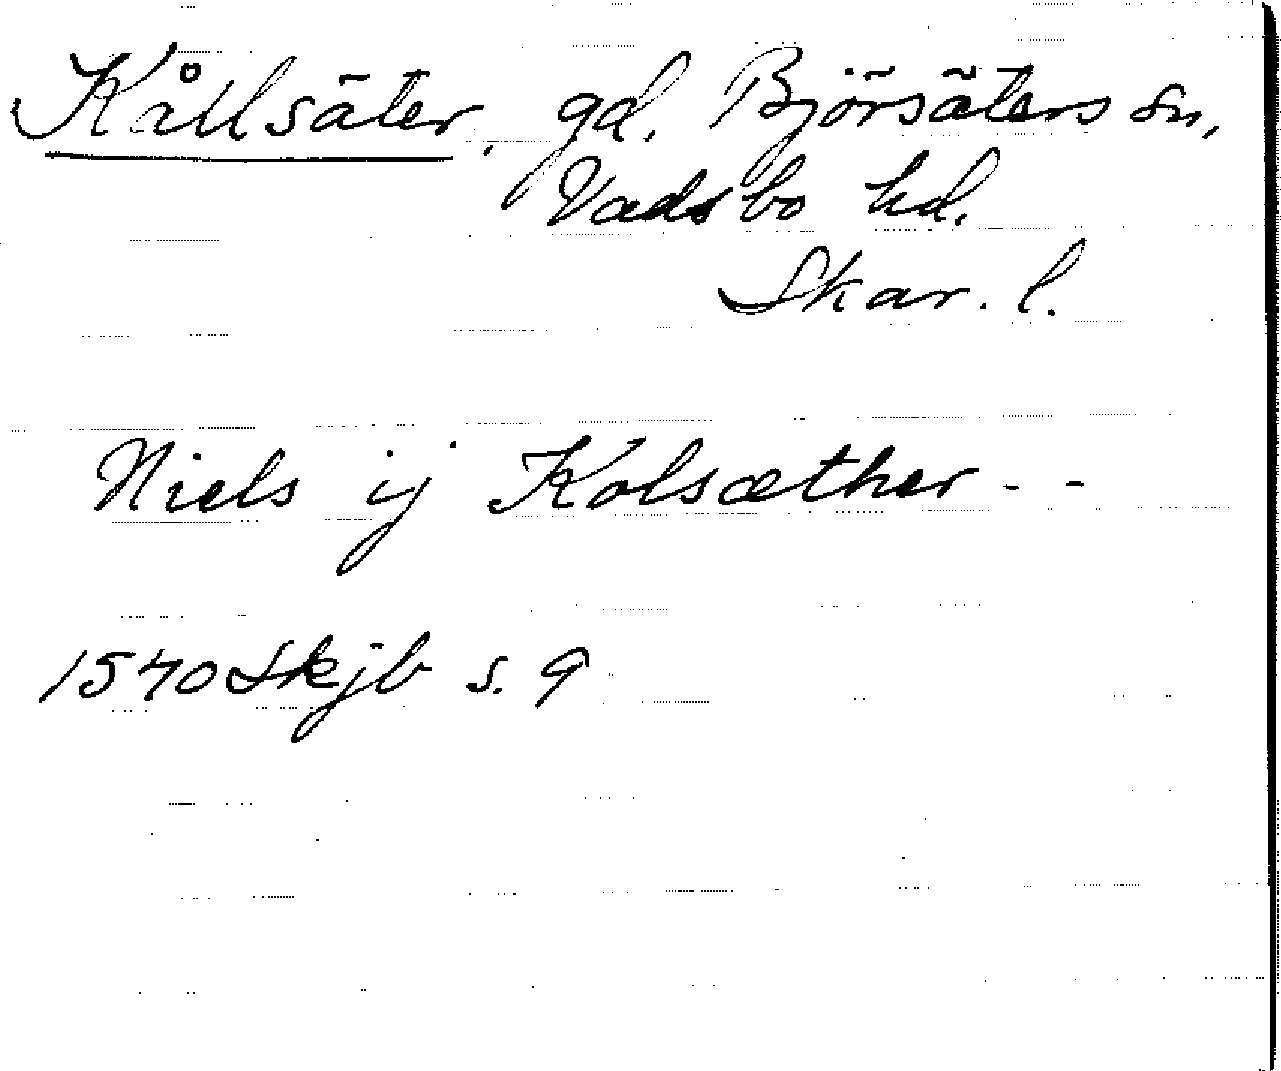 Kållsäter, gd. Björsäters sn,
Vadsbo hd.
Skar. l.
Niels ij Kolsæther - -
1540 Skjb s. 9